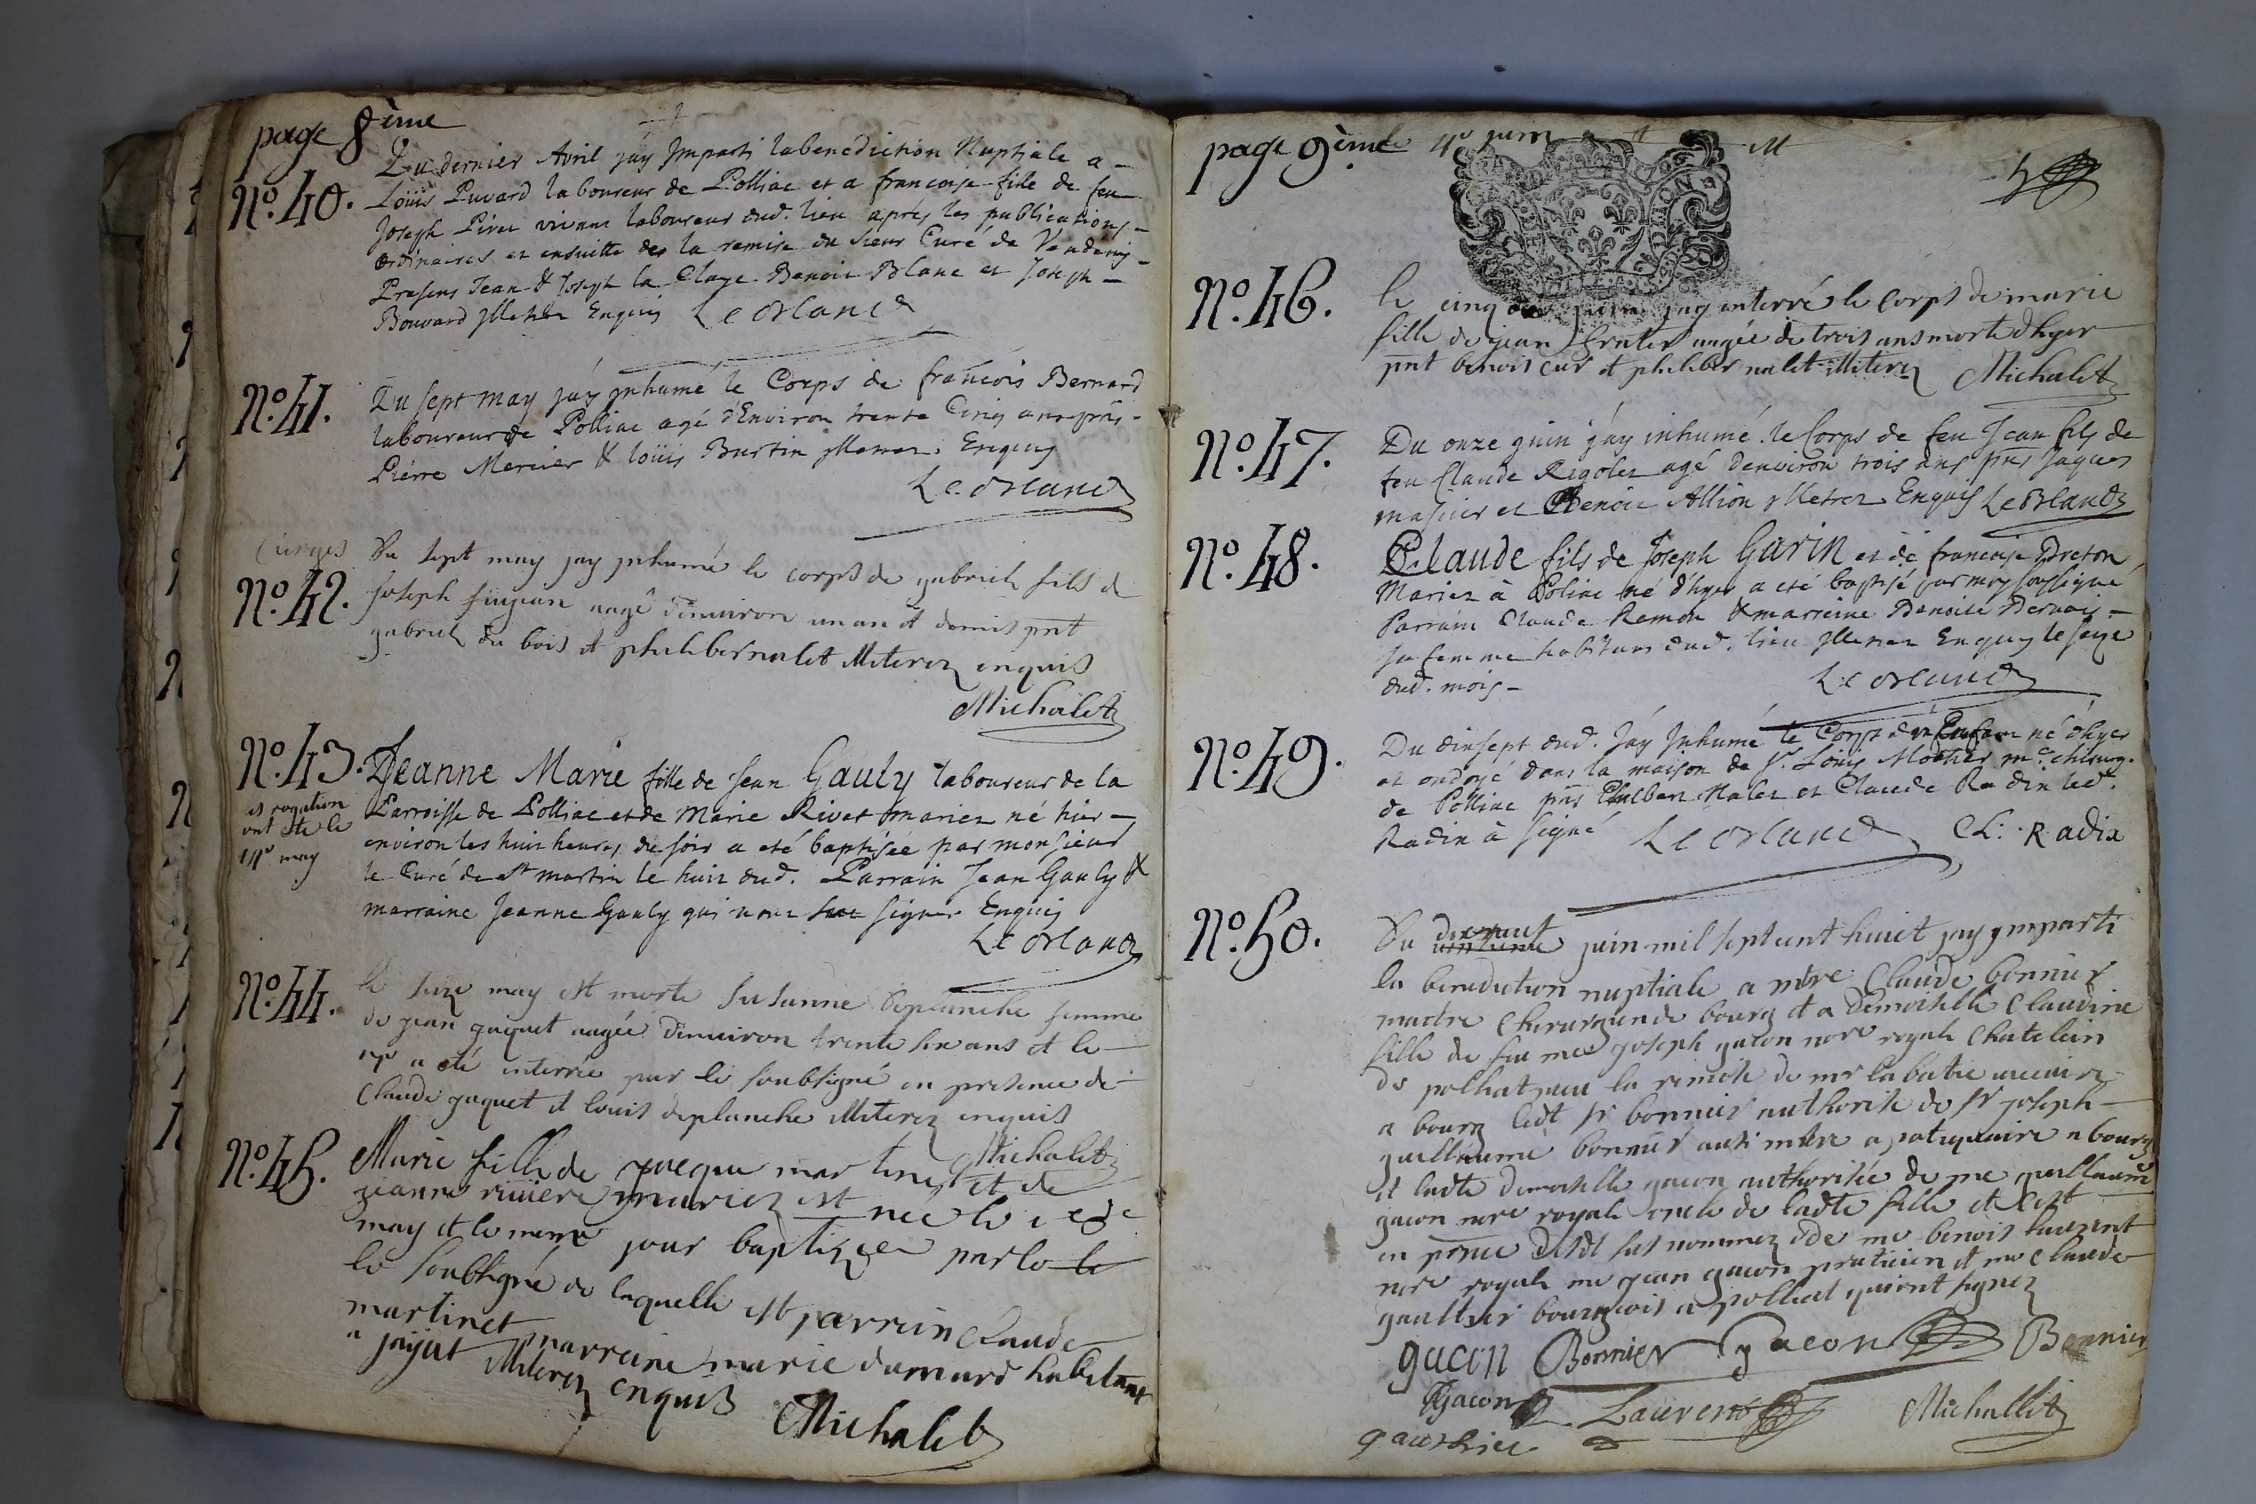 page 8ème
Du dernier Avril jáy Jmparti la benediction Nuptiale a
N.º 40.
Loüis Puvard laboureur de Polliac et a francoise fille de feu
Joseph Pivet vivant laboureur dud. lieu aprés les publications
ordinaires et ensuitte des la remise du sieur Curé de Vendeins
Presens Jean & Joseph la Claye Benoit Blanc et Joseph
Bouvard Illeterez Enquis LeBlanc
N.º 41.
Du sept may jáy jnhumé le Corps de francois Bernard
laboureur de Polliac agé d'Environ trente Cinq ans prñs
Piérre Mercier & loüis Burtin Illeterez Enquis
LeBlanc
Cierges
N.º 42.
Du sept may jay jnhumé le corps de gabriel fils de
Joseph aagé denviron un an et demis prñt
gabriel du bois et philibert nalet Illiterez enquis
Michalet
N.º 43.
Jeanne Marie fille de Jean Gauly laboureur de la
Parroisse de Polliac et de Marie Rivet mariez né hier
environ les huit heures du soir a eté baptisée par monsieur
le Curé de st martin le huit dud. Parrain Jean Gauly &
marraine Jeanne Gauly qui n'ont sceu signer Enquis
LeBlanc
et rogation
ont été le
14e may
N.º 44.
le seize may est morte Susanne deplanche femme
de jean gaquet aagée denviron trente six ans et le
17e a eté enterrée par le soubsigné en presence de
Claude gaquet et louis deplanche Illiterez enquis
Michalet
N.º 45.
Marie fille de jacque martinet et de
jeanne riviere mariez est née le
may et le meme jour baptizée par le
le soubsigné de laquelle est parrein Claude
martinet marreine marie dumard habitans
a jayat Illiterez enquis
Michalet
page 9ème 4e juin
N.º 46.
le cinq juin jay enterré le corps de marie
fille de jean aagée de trois ans morte dhyer
prñt benoit cur et philibert nalet Illiterez Michalet
N.º 47.
Du onze juin jáy inhumé le Corps de feu Jean fils de
feu Claude Rigolet agé d'environ trois ans prñs Jaques
masuier et Benoit Allion Illeterez Enquis LeBlanc
N.º 48.
Claude fils de Joseph Garin et de francoise Breton
Mariez à Poliac né d'hyer a eté baptisé par moy soussigné
Parrain Claude Remon & marreine Benoite Bernois
sa femme habitans dud. lieu Illeterez Enquis le seize
dud. mois LeBlanc
N.º 49.
Du dixsept dud. Jáy Jnhumé le Corps d'un Enfant né d'hyer
et ondoyé dans la maison de Sr. Loüis Mothier me. chirurg.
de Polliac prñs Philbert Nalet et Claude Radix led.
Radix à signé LeBlanc CL: Radix
N.º 50.
Du dixneuf juin mil sept cent huict jay jmparti
la benediction nuptiale a mtre Claude bonnier
maitre chirurgien de bourg et a demoiselle Claudine
fille de feu me joseph gacon nore royale Chatelain
de polliat veu la remise de mr labatie viccaire
a bourg ledt sr bonnier authorisé de sr joseph
guilliaume bonnier aussi mtre apotiquaire a bourg
et ladte demoiselle gacon authorisée de me guillaume
gacon nore royale oncle de ladte fille et cest
en prñce desdt sus nommez & de me benoit laurent
nore royale me jean gacon praticien et me claude
gaultier bourgeois a polliat qui ont signez
gacon Bonnier gacon Bonnier
Gacon Laurent Michallet
gauthier